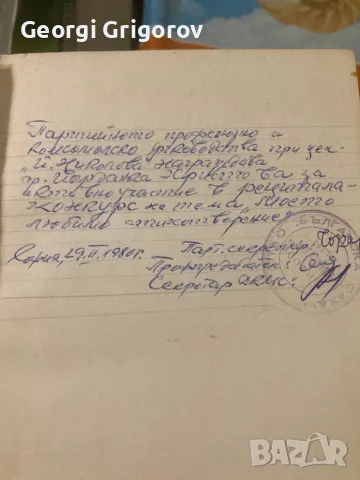 Georgi Grigorov
Партийното профсъюзно и
комсомолско ръководства при цех
"Й. Николова" награждава
др. Йорданка Христова за
активно участие в рецитала-
конкурс на тема "Моето
любимо стихотворение"
София, 29.II.1980г. Парт. секретар:
Профпредседател:
Секретар ДКМС:
bazar.bg